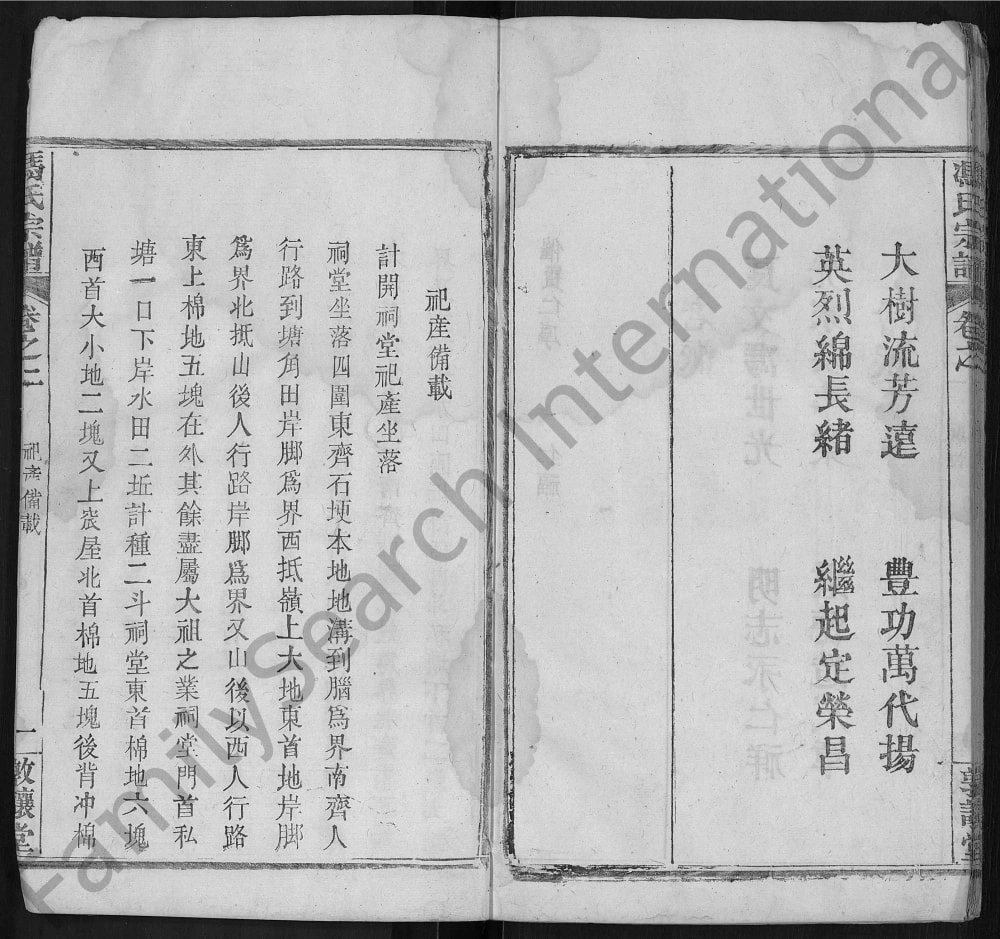 馮氏宗譜
卷之
大樹流芳遠 豐功萬代揚
英烈綿長緒 繼起定榮昌
祀產備載
計開祠堂祀產坐落
祠堂坐落四圍東齊石埂本地地溝到腦爲界南齊人
行路到塘角田岸脚爲界西抵嶺上大地東首地岸脚
爲界北抵山後人行路岸脚爲界又山後以西人行路
東上棉地五塊在外其餘盡屬大祖之業祠堂門首私
塘一口下岸水田二坵計種二斗祠堂東首棉地六塊
西首大小地二塊又上屋北首棉地五塊後背冲棉
馮氏宗譜
卷之二
祀產備載
一
敦讓堂
FamilySearch International